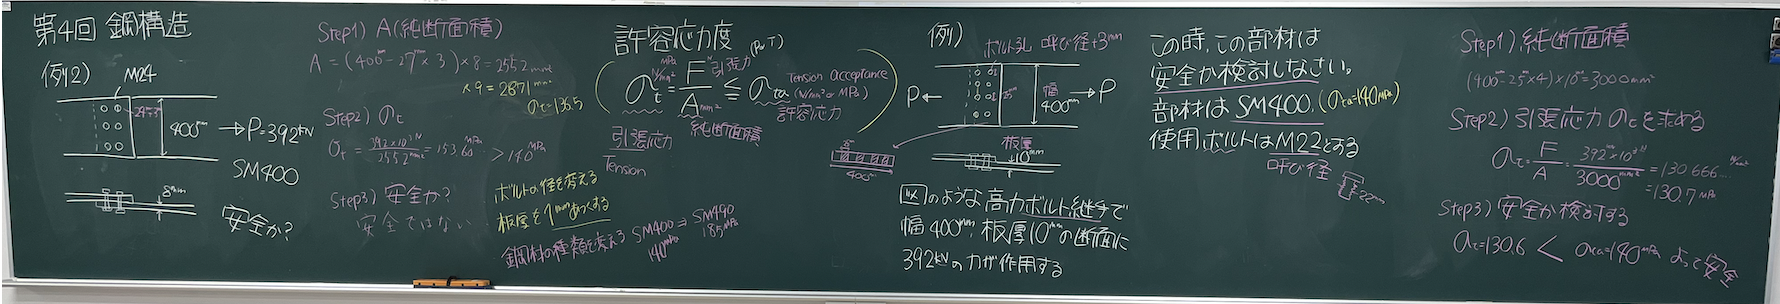 第4回 鋼構造
例2)
M24
27+3
400mm
P=392kN
SM400
8mm
安全か?
Step1) A(純断面積)
A = (400-27×3)×8=2552
×9=2871
σt=136.5
Step2) σt
σt = 392×10³N / 2552mm² = 153.60… > 140MPa
Step3) 安全か?
安全ではない
ボルトの径を変える
板厚を1mmあつくする
鋼材の種類を変える SM400⇒SM490
140MPa 185MPa
許容応力度
(P or T)
σt = F 引張力 / A mm² ≦ σta
MPa
N/mm²
Tension Acceptance
(N/mm² or MPa)
許容応力
純断面積
引張応力
Tension
例)
ボルト孔 呼び径+3mm
P
25mm
幅
400mm
P
板厚
10mm
400mm
図のような高力ボルト継手で
幅400mm, 板厚10mmの断面に
392kNの力が作用する
この時、この部材は
安全か検討しなさい。
部材はSM400, (σta=140MPa)
使用ボルトはM22とする
呼び径
22mm
Step1) 純断面積
(400-25×4)×10=3000mm²
Step2) 引張応力σtを求める
σt = F/A = 392×10³ / 3000 = 130.666…
=130.7MPa
Step3) 安全か検討する
σt=130.6 < σta=140MPa よって安全